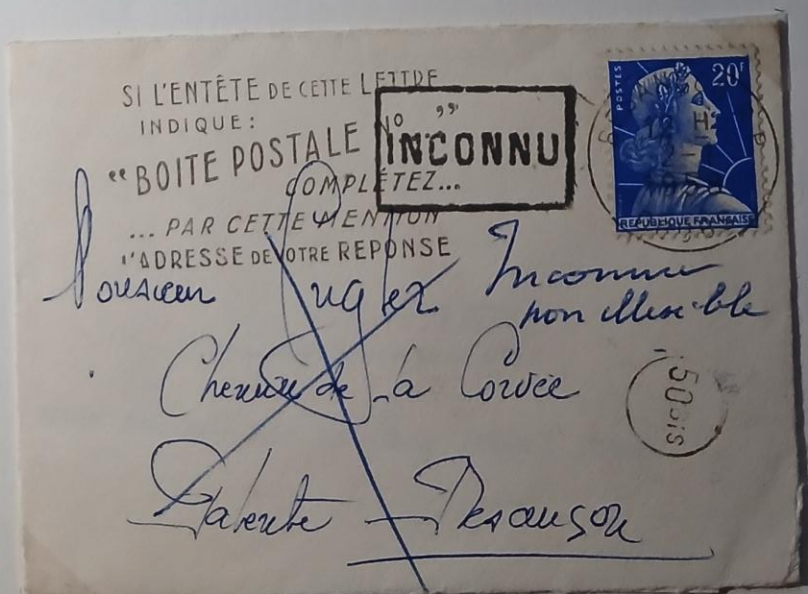 SI L'ENTÊTE DE CETTE LETTRE
INDIQUE :
"BOITE POSTALE N° "
COMPLÉTEZ...
... PAR CETTE MENTION
L'ADRESSE DE VOTRE REPONSE
INCONNU
POSTES
20F
REPUBLIQUE FRANÇAISE
12 H
2-
Monsieur
Inconnu
Chemin de La Corvée
50 BIS
Besançon